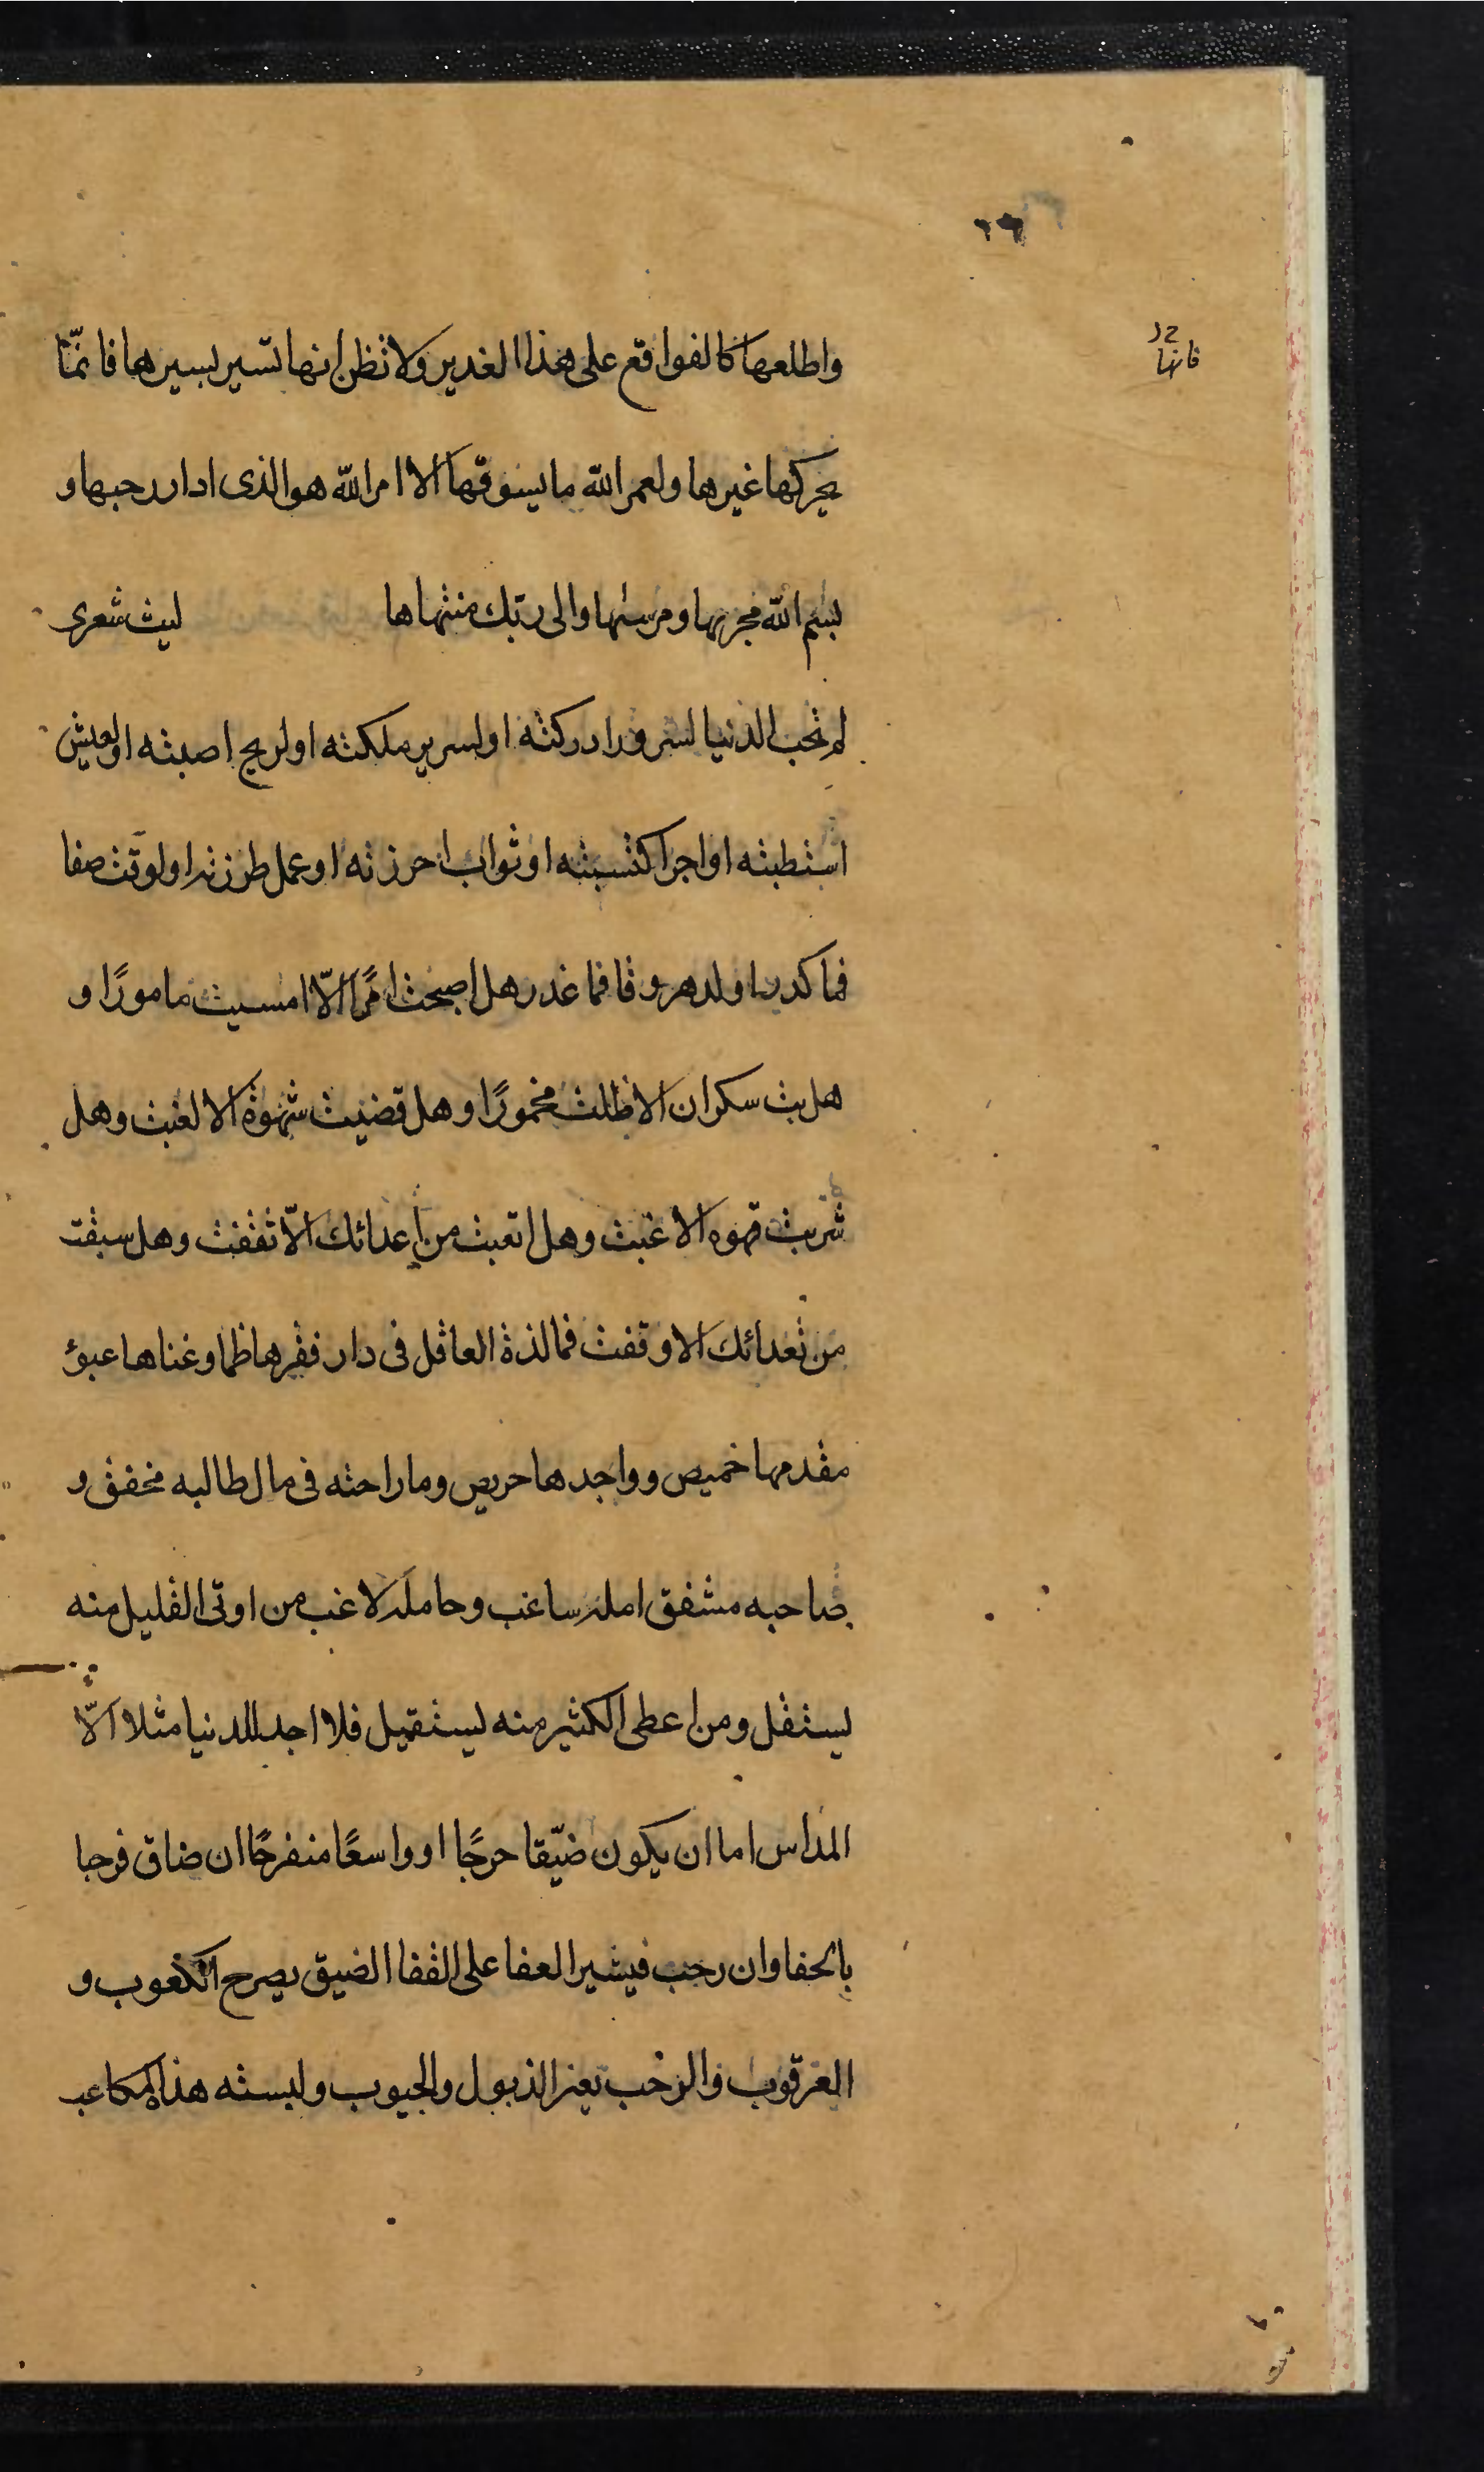 ٢٦
فانها
واطلعها كالفواقع على هذا الغدير ولا تظن انها تسير بسيرها فانما
يحركها غيرها ولعمر الله ما يسوقها الا امر الله هو الذى ادار رحيها و
بسم الله مجريها ومرسيها والى ربك منتهاها ليت شعرى
لم تحب الدنيا لسرور ادركته او لسرير ملكته او لربح اصبته او لعيش
استطبته او اجر اكتسبته او ثواب احرزته او عمل طرزته او لوقت صفا
فما كدر او لدهر وفا فما غدر هل اصبحت امرًا الّا امسيت مامورًا و
هل بت سكران الا ظلت مخمورًا وهل قضيت شهوة الا لغبت وهل
شربت قهوه الا غبت وهل اتعبت من اعدائك الّا ثقفت وهل سبقت
من تعدائك الا وقفت فما لذة العاقل فى دار فقرها ظما وغناها عبؤ
مقدمها خميص وواجدها حريص وما راحته فى مال طالبه مخفق و
صاحبه مشفق امله ساغب وحامله لاغب من اوتى القليل منه
يستقل ومن اعطى الكثير منه يستقيل فلا اجد للدنيا مثلا الّا
المداس اما ان يكون ضيّقا حرجًا او واسعًا منفرجًا ان ضاق فرحبا
بالحفا وان رحب فيشير العفا على القفا الضيق يصرح الكعوب و
العرقوب والرحب يعز الذيول والجيوب ولبسته هذا المكاعب